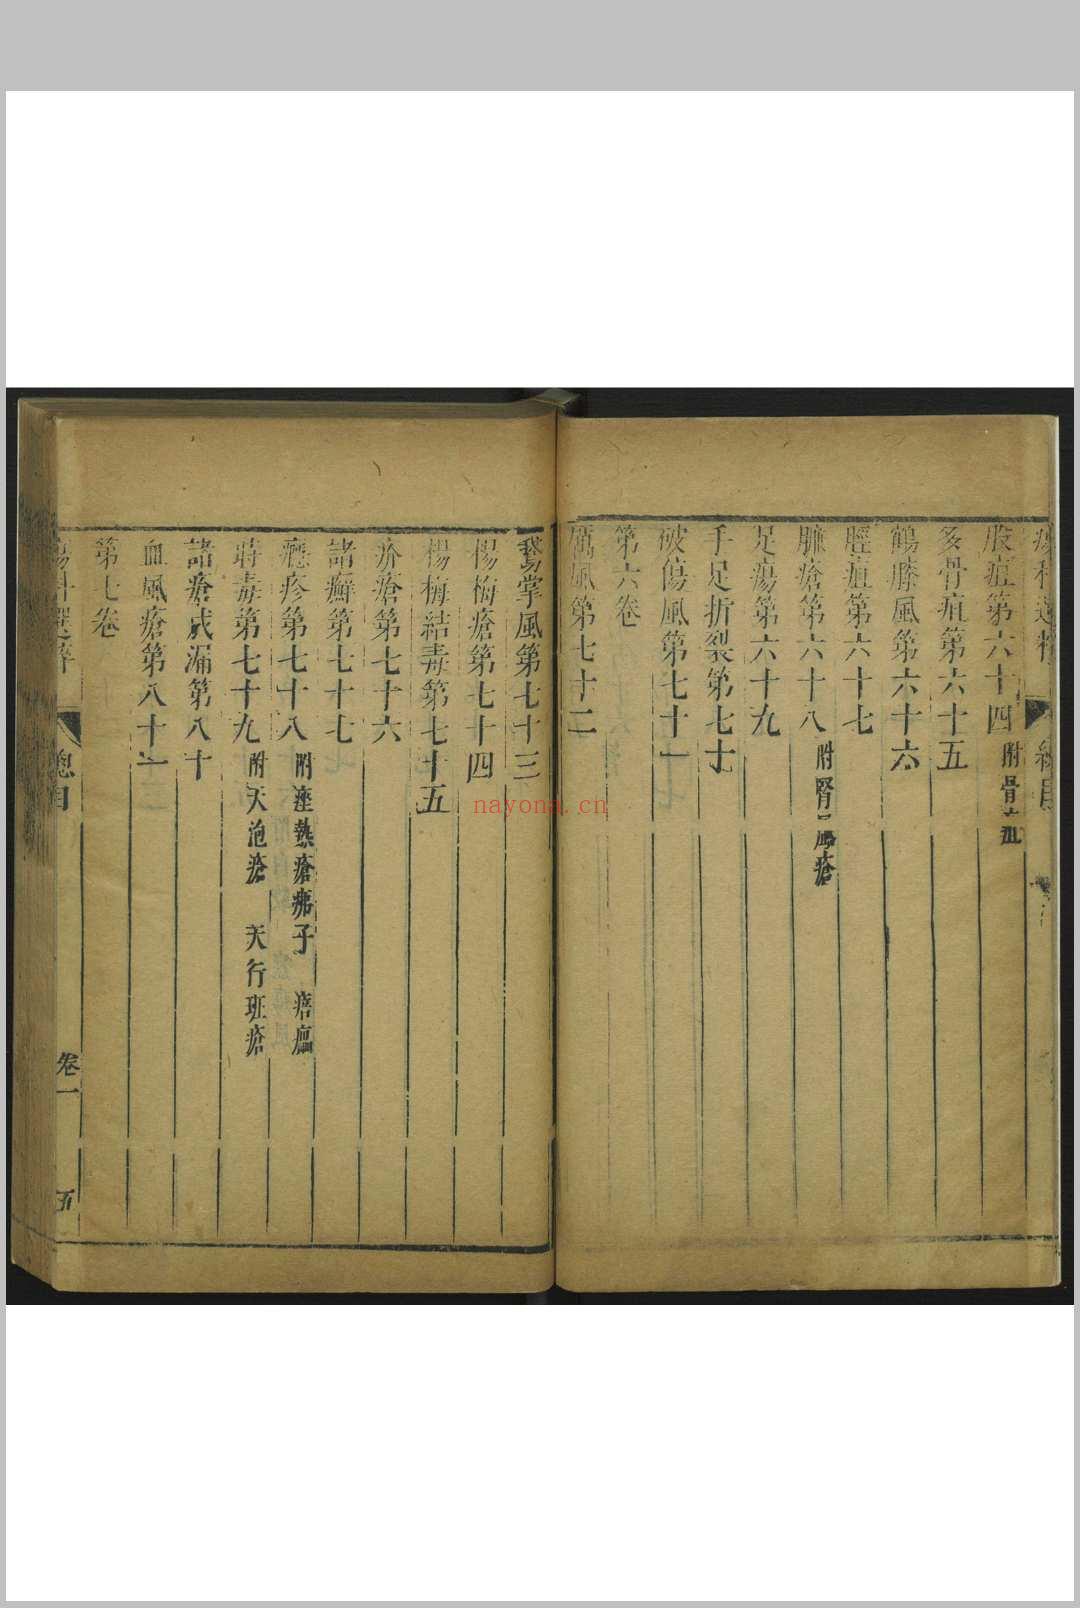 股疽第六十四 附骨疽
多骨疽第六十五
鶴膝風第六十六
脛疽第六十七
臁瘡第六十八 附腎風瘡
足瘍第六十九
手足折裂第七十
破傷風第七十一
第六卷
厲風第七十二
鵞掌風第七十三
楊梅瘡第七十四
楊梅結毒第七十五
疥瘡第七十六
諸癬第七十七
癮疹第七十八 附痤熱瘡疿子 㾦㿔
時毒第七十九 附天泡瘡 天行班瘡
諸瘡成漏第八十
血風瘡第八十一
第七卷
瘍科選粹 總目 卷一 五
nayona.cn